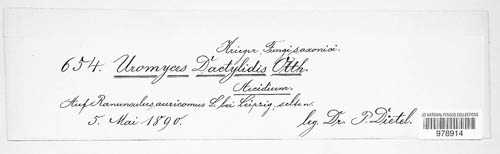 Krieger, Fungi saxonici.
654. Uromyces Dactylidis Otth.
Aecidium.
Auf Ranunculus auricomus L. bei Leipzig, selten.
5. Mai 1890. leg. Dr. P. Dietel.
US NATIONAL FUNGUS COLLECTIONS
978914